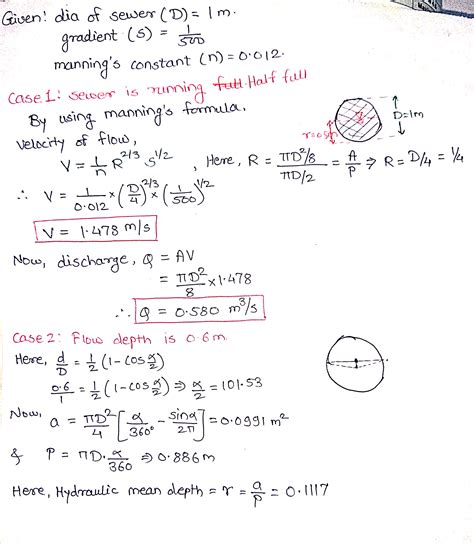 Given: dia of sewer (D) = 1m.
gradient (S) = 1/500
manning's constant (n) = 0.012.
Case 1: sewer is running full Half full
By using manning's formula,
Velocity of flow,
V = 1/n R^2/3 S^1/2, Here, R = (πD²/8)/(πD/2) = A/P ⇒ R = D/4 = 1/4
∴ V = 1/0.012 × (D/4)^2/3 × (1/500)^1/2
V = 1.478 m/s
D=1m
r=0.5m
Now, discharge, Q = AV
= πD²/8 × 1.478
∴ Q = 0.580 m³/s
Case 2: Flow depth is 0.6m.
Here, d/D = 1/2 (1-cos α/2)
0.6/1 = 1/2 (1-cos α/2) ⇒ α/2 = 101.53
Now, a = πD²/4 [α/360° - sinα/2π] = 0.0991 m²
& P = πD.α/360 ⇒ 0.886m
Here, Hydraulic mean depth = r = a/P = 0.1117